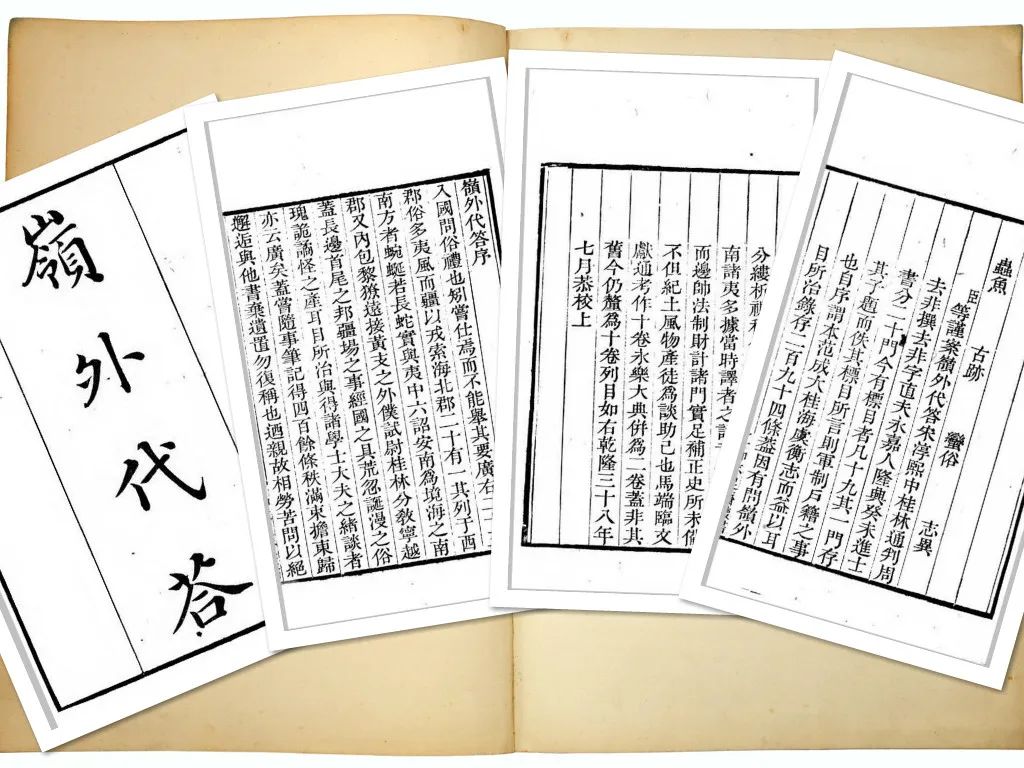 嶺外代答
嶺外代答序
入國問俗禮也矧嘗仕焉而不能舉其要廣右二
郡俗多夷風而疆以戎索海北郡二十有一其列于西
南方者蜿蜒若長蛇實與夷中六詔安南爲境海之南
郡又內包黎獠遠接黃支之外僕試尉桂林分教寧越
蓋長邊首尾之邦疆場之事經國之具荒忽誕漫之俗
瑰詭譎怪之產耳目所治與得諸學士大夫之緒談者
亦云廣矣蓋嘗隨事筆記得四百餘條秩滿束擔東歸
邂逅與他書棄遺置勿復稱也迺親故相勞苦問以絕
分縷析視
南諸夷多據當時譯者之
而邊帥法制財計諸門實足補正史所未備
不但紀土風物產徒爲談助已也馬端臨文
獻通考作十卷永樂大典併爲二卷蓋非其
舊今仍釐爲十卷列目如右乾隆三十八年
七月恭校上
蟲魚 古跡 蠻俗 志異
臣等謹案嶺外代答宋淳熙中桂林通判周
去非撰去非字直夫永嘉人隆興癸未進士
書分二十門今有標目者凡十九其一門存
其子題而佚其標目所言則軍制戶籍之事
也自序謂本范成大桂海虞衡志而益以耳
目所治錄存二百九十四條蓋因有問嶺外